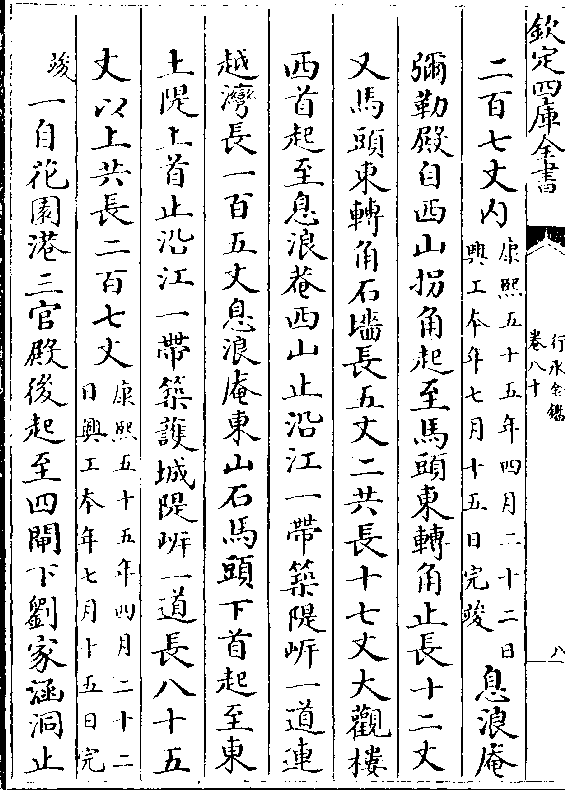 欽定四庫全書
行水金鑑
卷八十
八
二百七丈内康熙五十五年四月二十二日
興工本年七月十五日完竣息浪庵
彌勒殿自西山拐角起至馬頭東轉角止長十二丈
又馬頭東轉角石墻長五丈二共長十七丈大觀樓
西首起至息浪菴西山止沿江一帶築隄岍一道連
越灣長一百五丈息浪庵東山石馬頭下首起至東
土隄上首止沿江一帶築護城隄岍一道長八十五
丈以上共長二百七丈康熙五十五年四月二十二
日興工本年七月十五日完
竣一自花園港三官殿後起至四閘下劉家涵洞止